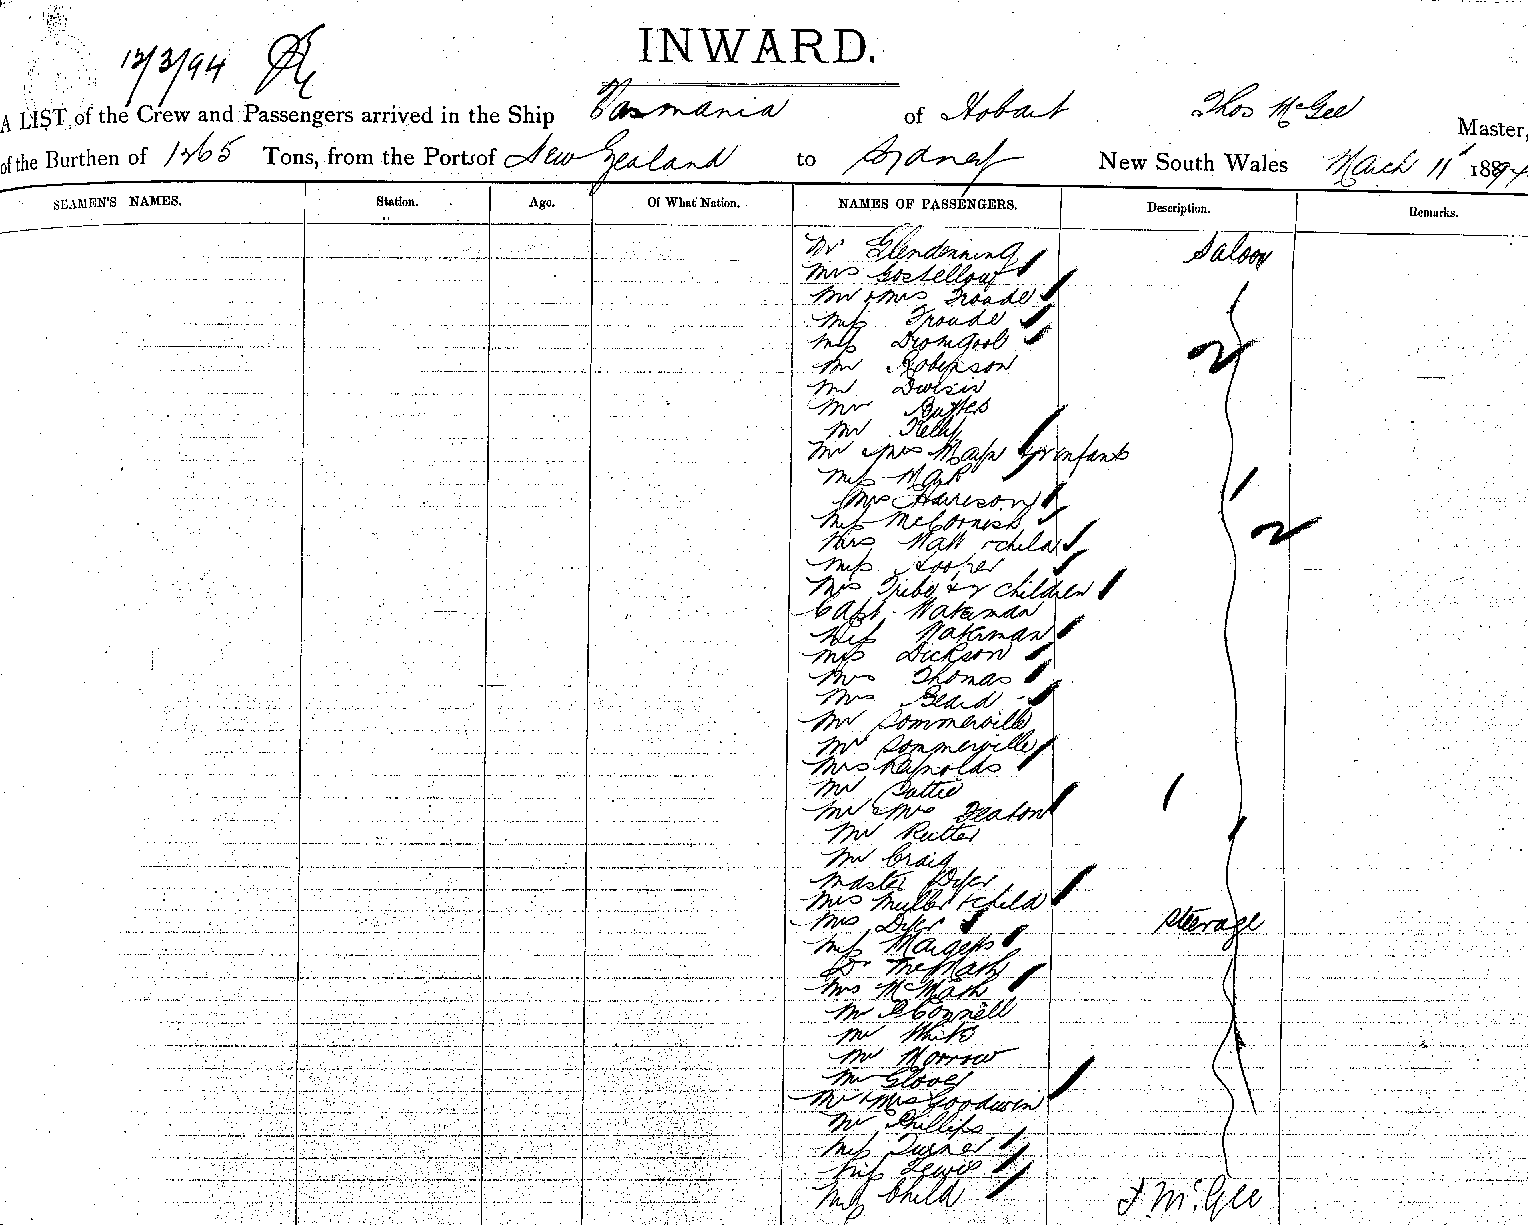 INWARD.
12/3/94
A LIST of the Crew and Passengers arrived in the Ship Tasmania of Hobart Thos McGee Master,
of the Burthen of 1265 Tons, from the Ports of New Zealand to Sydney New South Wales March 11th 1894
SEAMEN'S NAMES. Station. Age. Of What Nation. NAMES OF PASSENGERS. Description. Remarks.
Mr Glendenning Saloon
Mrs Costellow
Mr & Mrs Froude
Miss Froude
Miss Dromgool
Mr Robinson
Mr
Mr
Mr Kelly
Mr & Mrs infants
Miss
Mrs Harrison
Miss McCormish
Mrs Watt & child
Miss Hooper
Mrs Tribe & 2 children
Capt. Wakeman
Miss Wakeman
Miss Dickson
Mrs Thomas
Mrs Beard
Mr Sommerville
Mr Sommerville
Mrs Reynolds
Mr
Mr & Mrs Deaton
Mr Rutter
Mr Craig
Master Dyer
Mrs Muller & child
Mrs Dyer Steerage
Miss
Dr McMath
Mrs McMath
Mr O'Connell
Mr White
Mr Morrow
Mr Glover
Mr & Mrs Goodwin
Mr Phillips
Miss Turner
Miss Lewis
Miss Child
T McGee